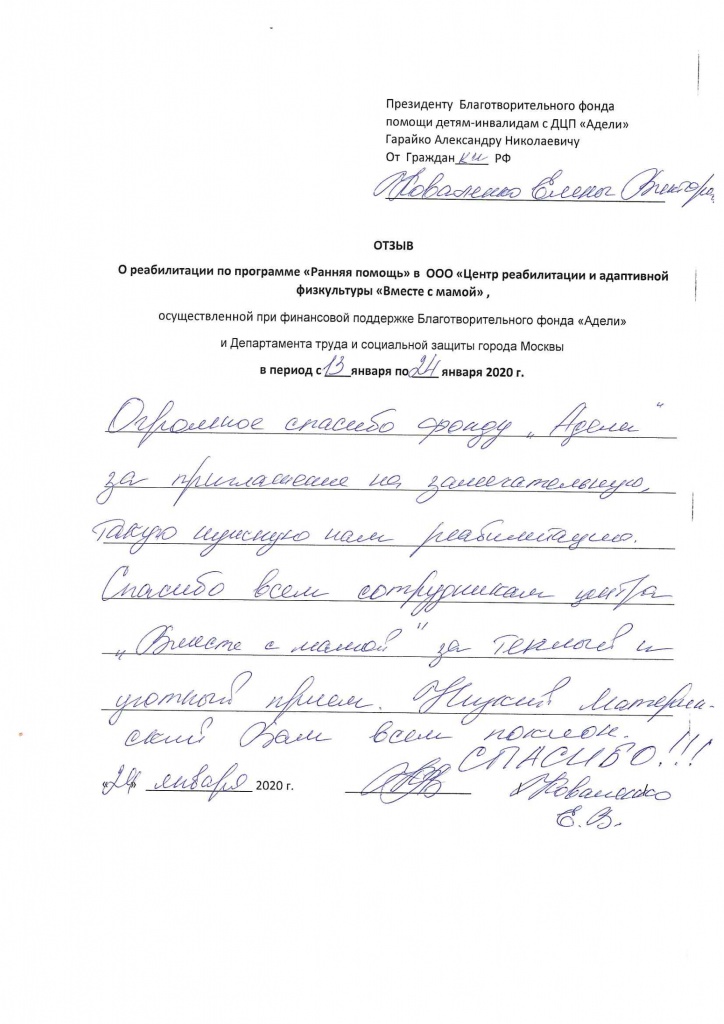 Президенту Благотворительного фонда
помощи детям-инвалидам с ДЦП «Адели»
Гарайко Александру Николаевичу
От Граждан ки РФ
Коваленко Елены
ОТЗЫВ
О реабилитации по программе «Ранняя помощь» в ООО «Центр реабилитации и адаптивной
физкультуры «Вместе с мамой» ,
осуществленной при финансовой поддержке Благотворительного фонда «Адели»
и Департамента труда и социальной защиты города Москвы
в период с 13 января по 24 января 2020 г.
Огромное спасибо фонду „Адели“
за приглашение на замечательную,
такую нужную нам реабилитацию.
Спасибо всем сотрудникам центра
„Вместе с мамой“ за теплый и
уютный прием. Низкий Материн-
ский Вам всем поклон.
СПАСИБО!!!
«24» января 2020 г.
Коваленко
Е.В.